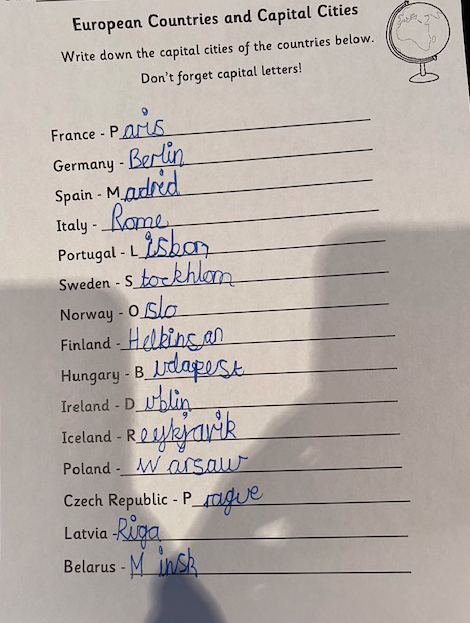 European Countries and Capital Cities
Write down the capital cities of the countries below.
Don't forget capital letters!
France - Paris
Germany - Berlin
Spain - Madrid
Italy - Rome
Portugal - Lisbon
Sweden - Stockhlom
Norway - Oslo
Finland - Helkinsan
Hungary - Budapest
Ireland - Dublin
Iceland - Reykjavik
Poland - Warsaw
Czech Republic - Prague
Latvia - Riga
Belarus - Minsk